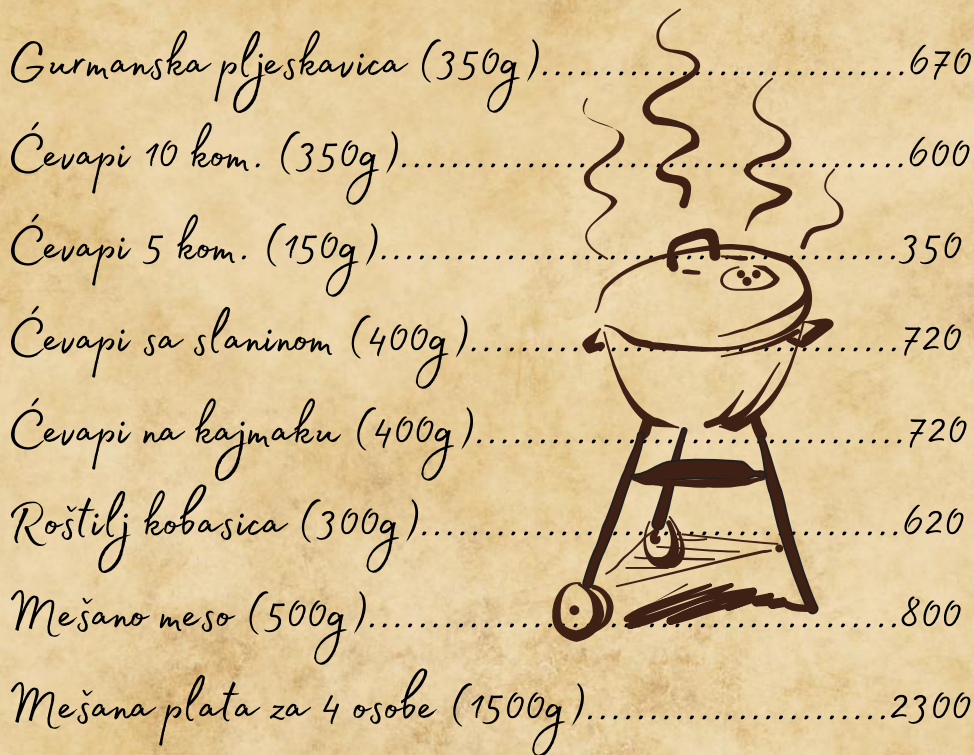 Gurmanska pljeskavica (350g)..............................670
Ćevapi 10 kom. (350g)..........................................600
Ćevapi 5 kom. (150g)...........................................350
Ćevapi sa slaninom (400g)...................................720
Ćevapi na kajmaku (400g)...................................720
Roštilj kobasica (300g)........................................620
Mešano meso (500g)............................................800
Mešana plata za 4 osobe (1500g).........................2300